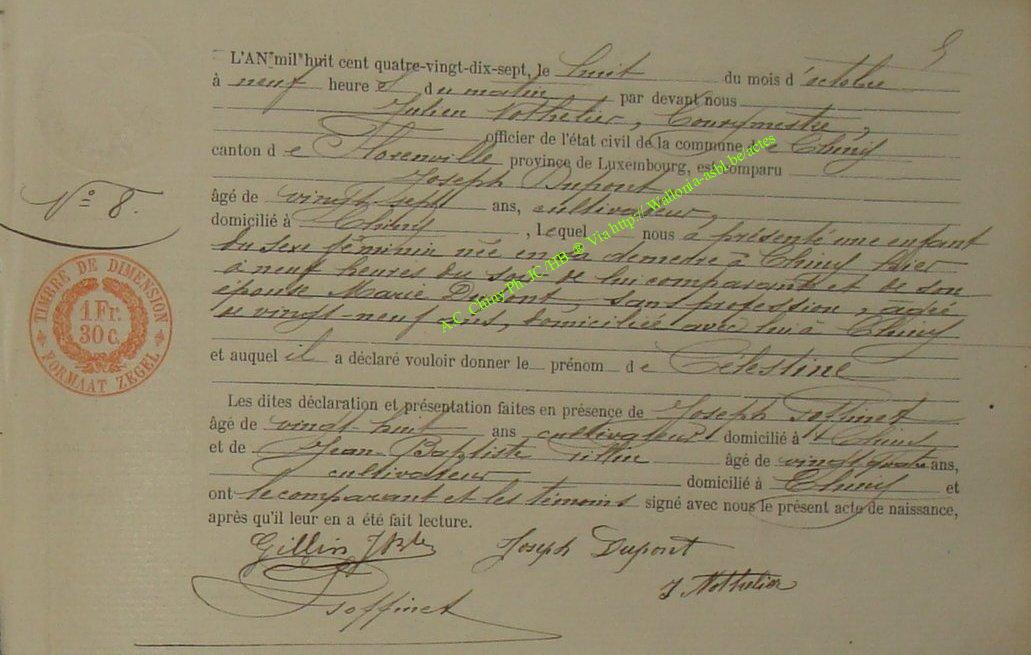 L'AN mil huit cent quatre-vingt-dix-sept, le huit du mois d'octobre
à neuf heures du matin par devant nous
Julien Nothelier, Bourgmestre,
officier de l'état civil de la commune de Chiny
canton de Florenville province de Luxembourg, est comparu
Joseph Dupont
N° 8.
âgé de vingt-sept ans, cultivateur,
domicilié à Chiny, Lequel nous a présenté une enfant
du sexe féminin née en sa demeure à Chiny hier
à neuf heures du soir de lui comparant et de son
épouse Marie Dupont, sans profession, âgée
de vingt-neuf ans, domiciliée avec lui à Chiny
TIMBRE DE DIMENSION
1 Fr.
30 c.
FORMAAT ZEGEL
et auquel il a déclaré vouloir donner le prénom de Célestine
Les dites déclaration et présentation faites en présence de Joseph Soffinet
âgé de vingt-huit ans cultivateur domicilié à Chiny
et de Jean Baptiste âgé de vingt quatre ans,
cultivateur domicilié à Chiny et
ont le comparant et les témoins signé avec nous le présent acte de naissance,
après qu'il leur en a été fait lecture.
Gillin JBte Joseph Dupont
J Nothelier
Soffinet
A.C. Chiny Ph. JC /HB ® Via http:// Wallonia-asbl.be/actes